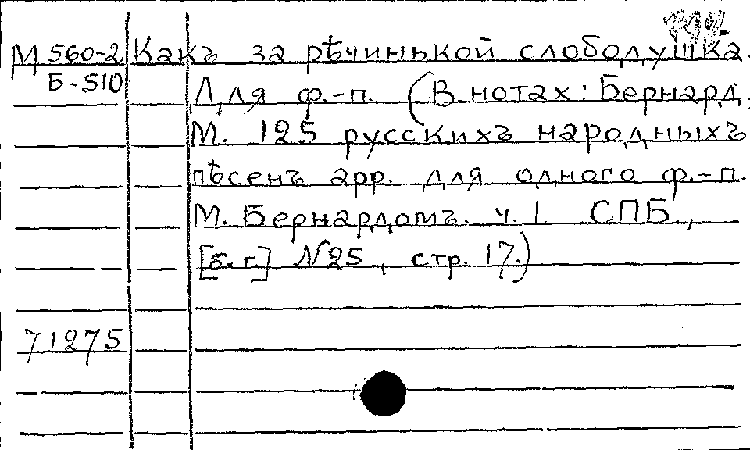 М 560-2 Какъ за рѣчинькой слободушка.
Б-510 Для ф.-п. (В нотах: Бернард,
М. 125 русскихъ народныхъ
пѣсенъ арр. для одного ф.-п.
М. Бернардомъ. ч. I. СПБ,
[б.г.] №25, стр. 17.)
71275